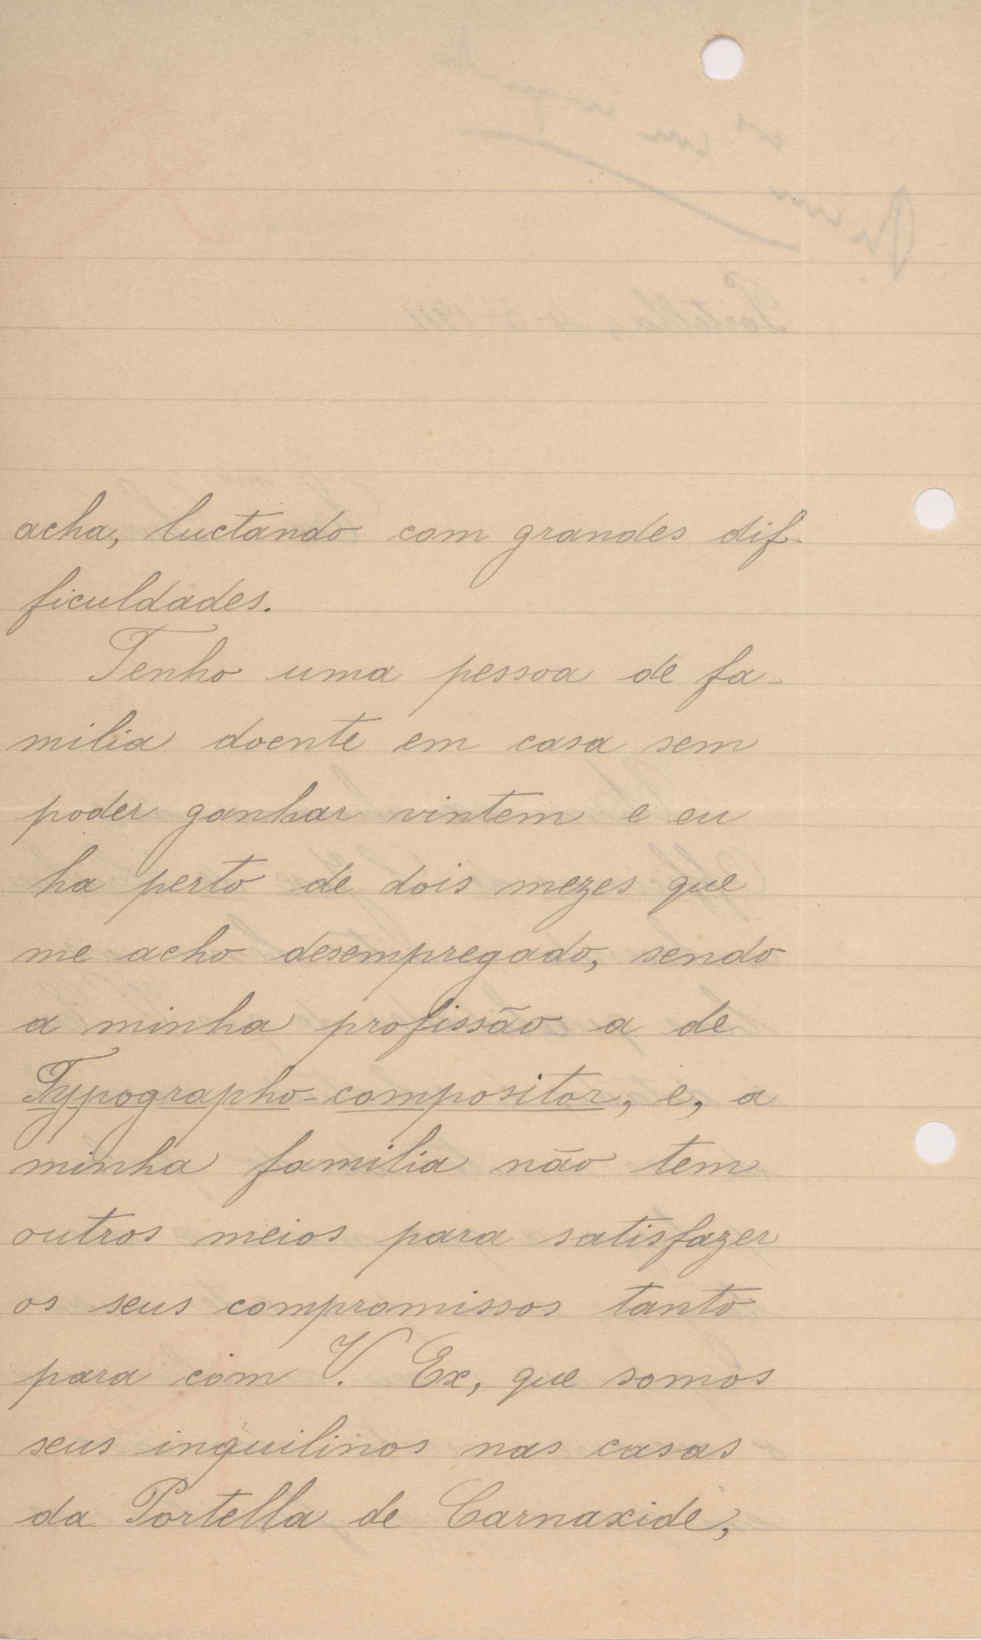 acha, luctando com grandes dif-
ficuldades.
Tenho uma pessoa de fa-
milia doente em casa sem
poder ganhar vintem e eu
ha perto de dois mezes que
me acho desempregado, sendo
a minha profissão a de
Typographo-compositor, e, a
minha familia não tem
outros meios para satisfazer
os seus compromissos tanto
para com V. Ex, que somos
seus inquilinos nas casas
da Portella de Carnaxide,